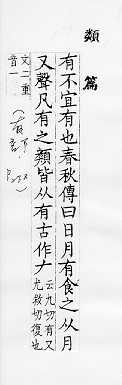 類
篇
有不宜有也春秋傳曰日月有食之从月
又聲凡有之類皆从有古作𠂇
云九切有又
尤救切復也
文二重
音一